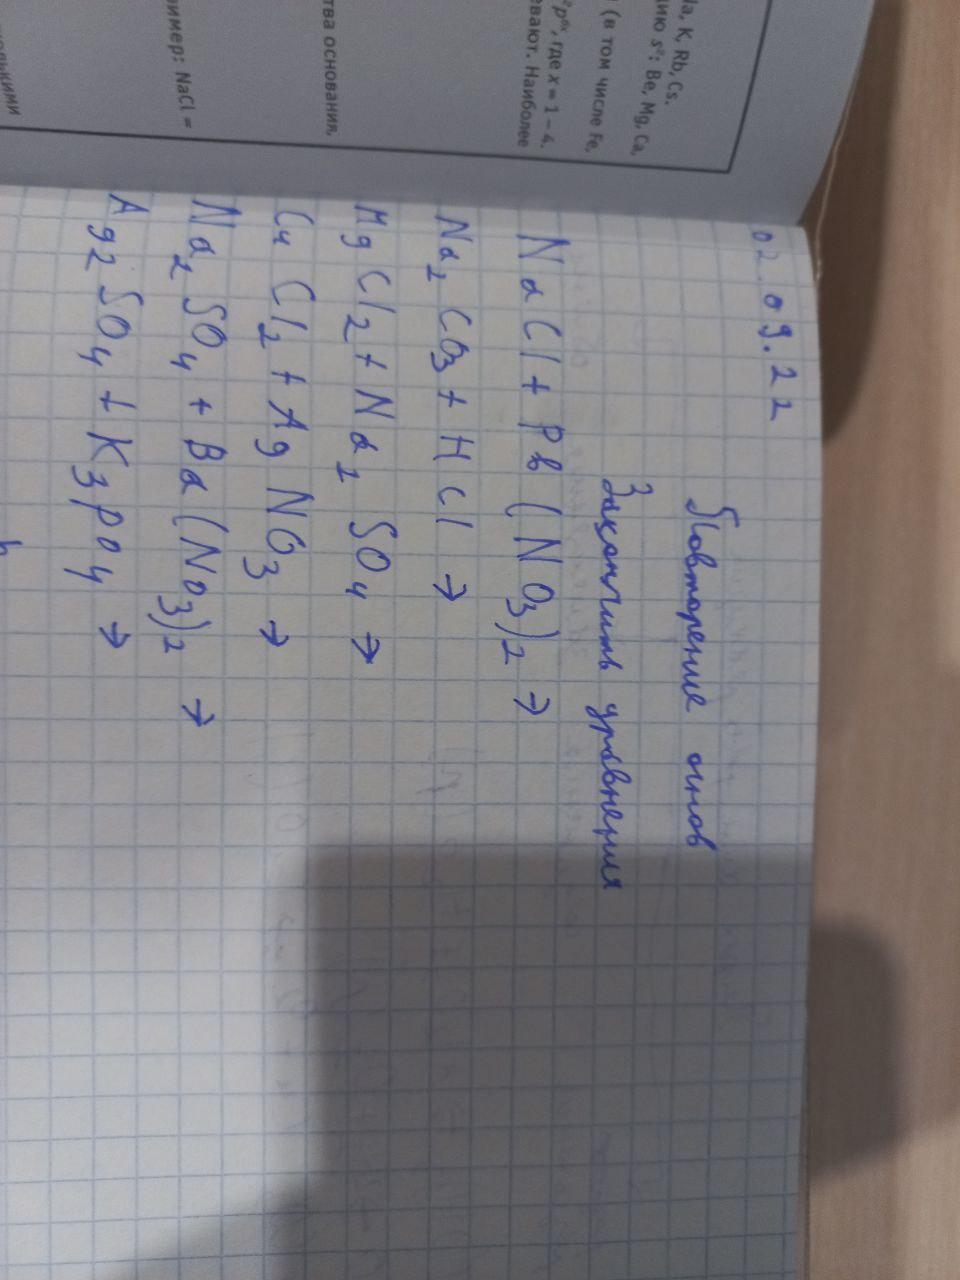 Na, K, Rb, Cs.
цию s²: Be, Mg, Ca,
(в том числе Fe,
где x = 1 – 4.
евают. Наиболее
тва основания,
ример: NaCl =
олькими
02.09.22
Повторение основ
Закончить уравнения
NaCl + Pb(NO3)2 →
Na2CO3 + HCl →
MgCl2 + Na2SO4 →
CuCl2 + AgNO3 →
Na2SO4 + Ba(NO3)2 →
Ag2SO4 + K3PO4 →